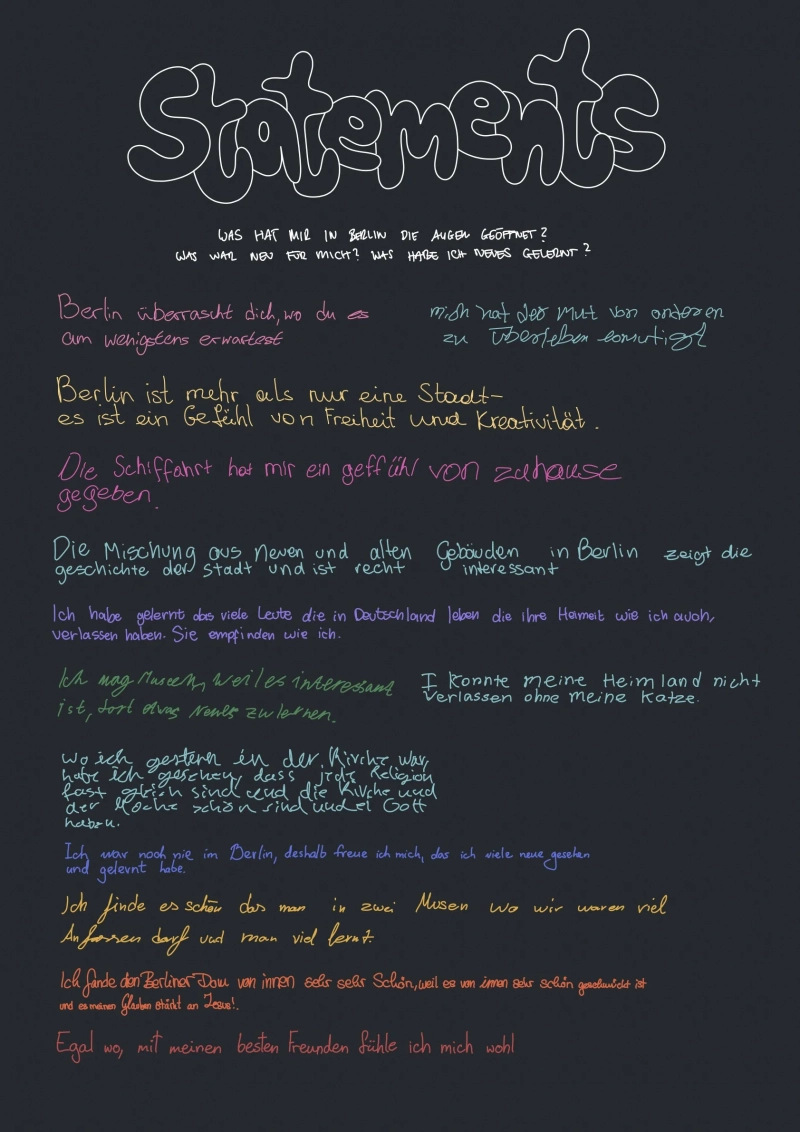 Statements
WAS HAT MIR IN BERLIN DIE AUGEN GEÖFFNET?
WAS WAR NEU FÜR MICH? WAS HABE ICH NEUES GELERNT?
Berlin überrascht dich, wo du es
am wenigstens erwartest
mich hat der Mut von anderen
zu Überleben ermutigt
Berlin ist mehr als nur eine Stadt–
es ist ein Gefühl von Freiheit und Kreativität.
Die Schiffahrt hat mir ein geffühl von zuhause
gegeben.
Die Mischung aus neuen und alten Gebäuden in Berlin zeigt die
geschichte der Stadt und ist recht interessant
Ich habe gelernt das viele Leute die in Deutschland leben die Ihre Heimeit wie ich auch,
verlassen haben. Sie empfinden wie ich.
Ich mag Museen, weil es interessant
ist, dort etwas Neues zu lernen.
I konnte meine Heimland nicht
verlassen ohne meine Katze.
wo ich gestern in der Kirche war,
habe ich gesehen, dass jede Religion
fast gleich sind und die Kirche und
der schön sind und Gott
haben.
Ich war noch nie im Berlin, deshalb freue ich mich, das ich viele neue gesehen
und gelernt habe.
Ich finde es schön das man in zwei Musen wo wir waren viel
Anfassen darf und man viel lernt.
Ich fande den Berliner Dom von innen sehr sehr Schön, weil es von innen sehr schön geschmückt ist
und es meinen Glauben stärkt an Jesus!.
Egal wo, mit meinen besten Freunden fühle ich mich wohl